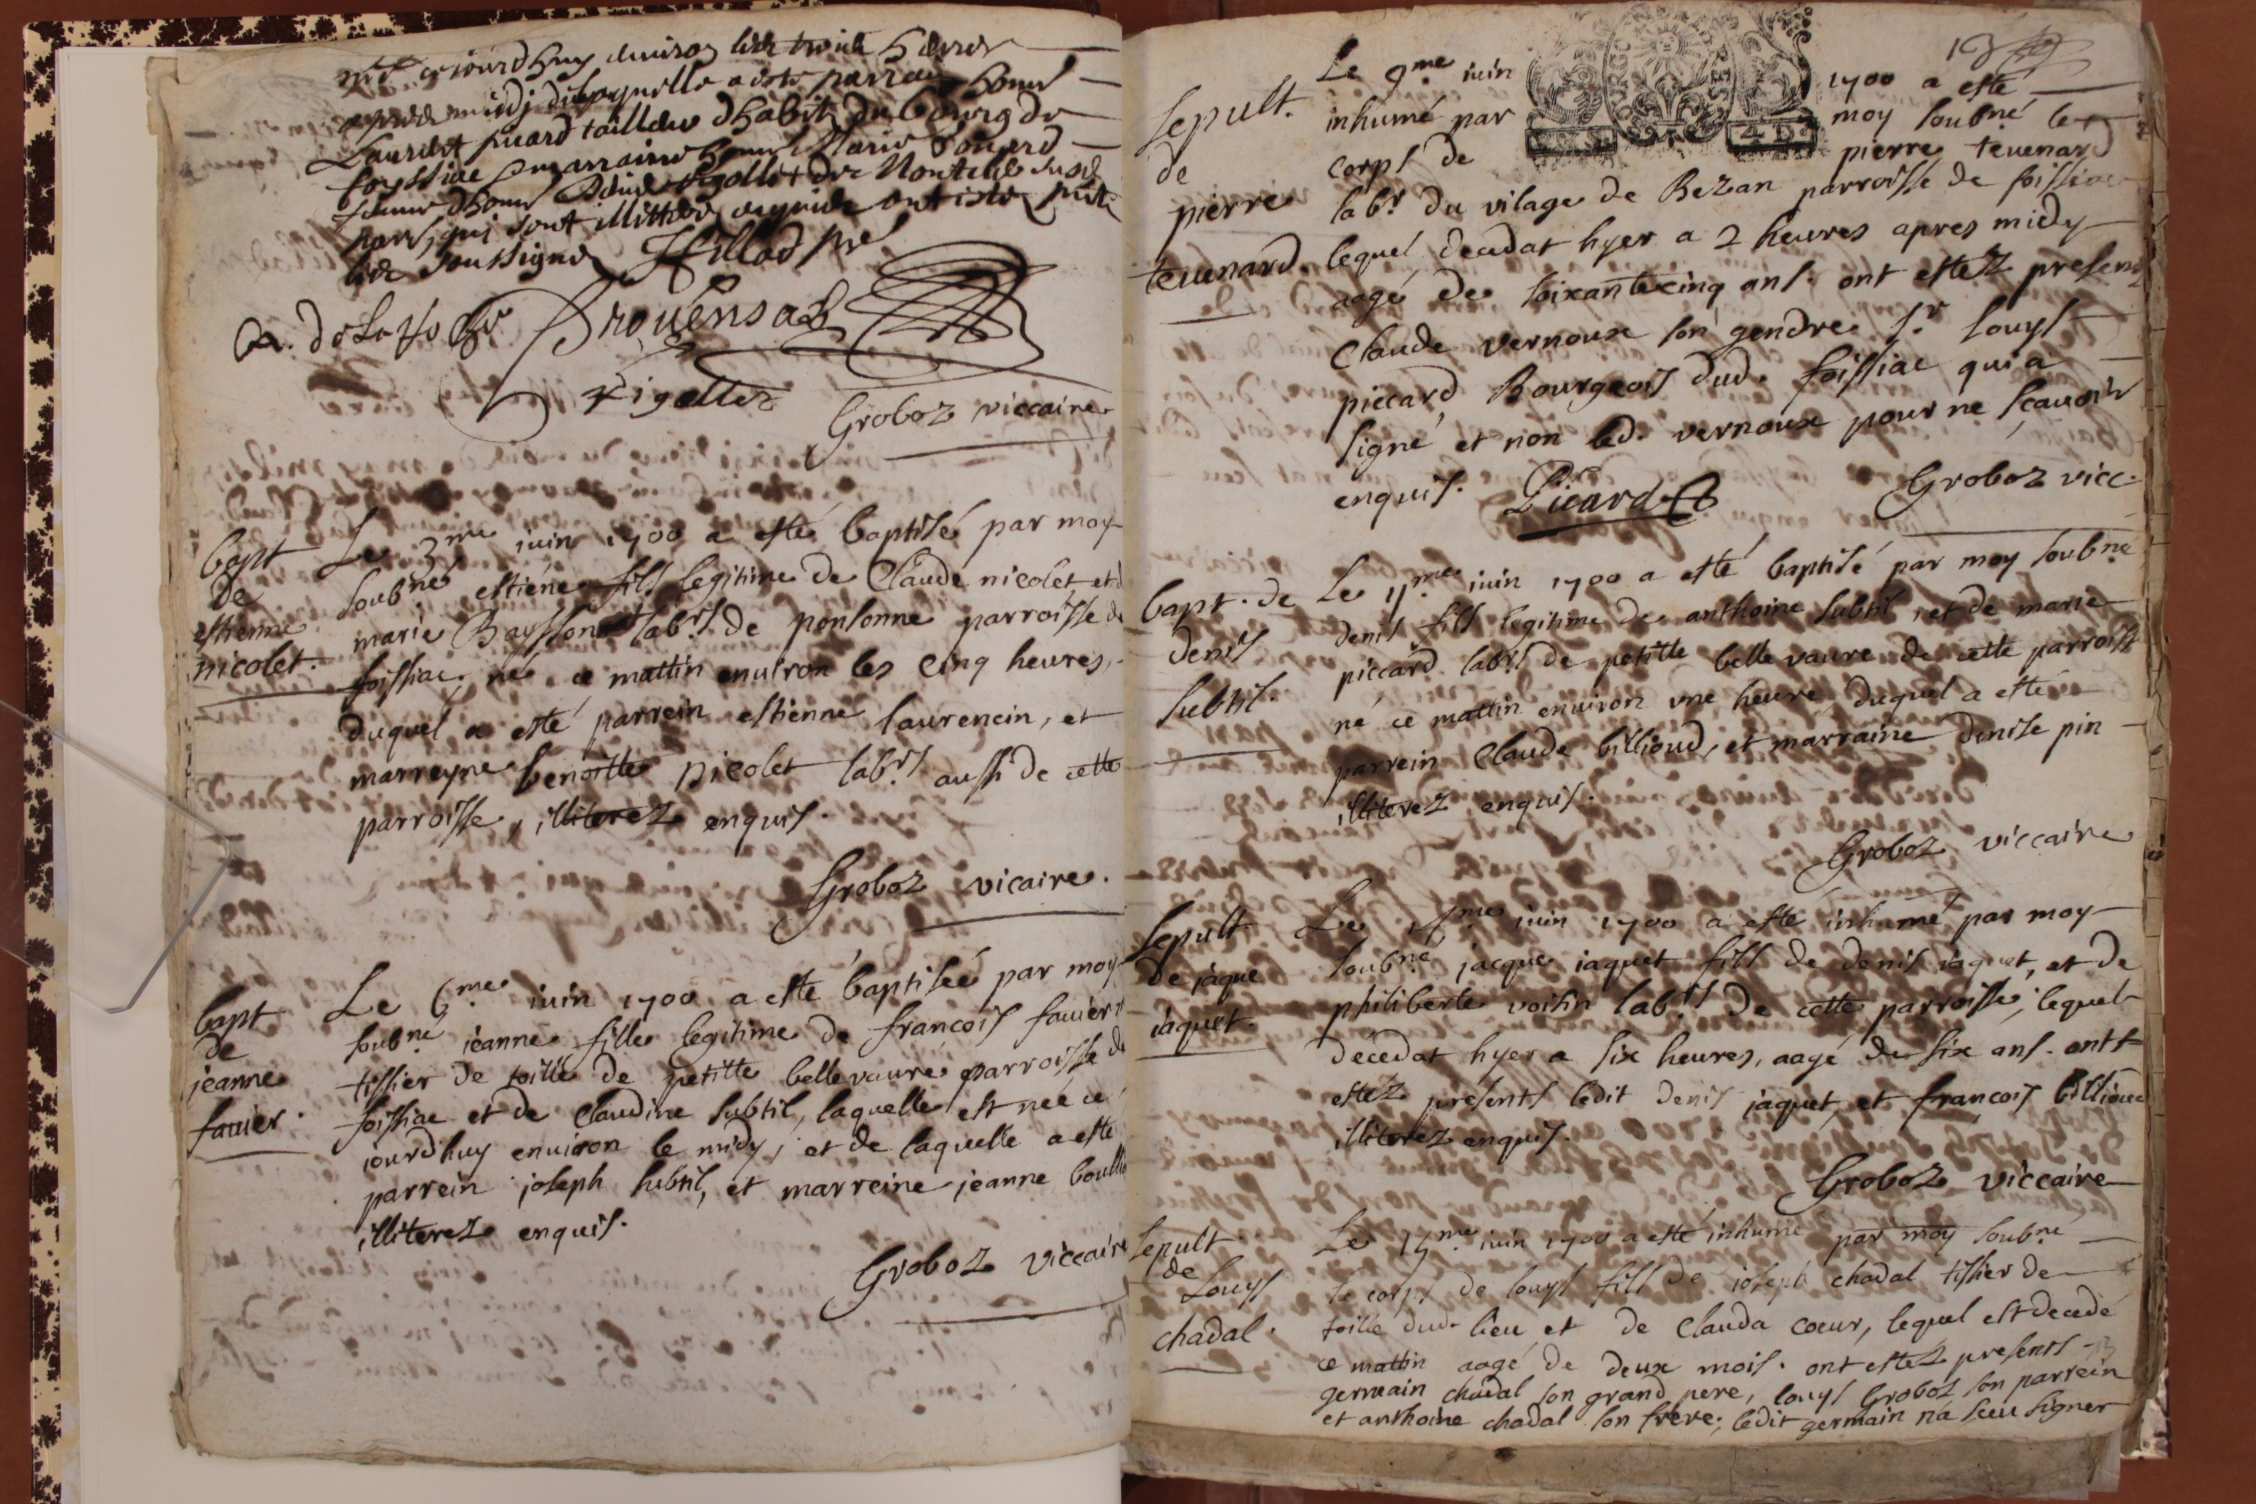 née ce jourdhuy environ les trois heures
apres midj de laquelle a esté parrain honn.
Laurent picard tailleur dhabits du bourg de
foyssiac
par, qui sont illitteres enquis
les soussignes
Brouensad
Rigollet
Groboz viccaire
bapt
de
estienne
nicolet.
Le 3.me iuin 1700 a esté baptisé par moy
soubné estiene fils legitime de Claude nicolet et d
marie Baysson labrs de ponsonne parroisse de
foissiac, né ce mattin environ les cinq heures,
duquel a esté parrein estienne laurencin, et
marreyne benoitte nicolet labrs aussi de cette
parroisse, illiterez enquis.
Groboz vicaire.
bapt
de
jeanne
fauier.
Le 6.me iuin 1700 a esté baptiseé par moy
soubné ieanne fille legitime de francois fauier
tissier de toille de petitte bellevaure parroisse de
foissiac et de Claudine subtil, laquelle est neé ce
iourdhuy enuiron le midy, et de laquelle a esté
parrein joseph subtil, et marreine jeanne
illiterez enquis.
Groboz viccaire
sepult.
de
pierre
teuenard.
Le 9.me iuin 1700 a esté
inhumé par moy soubné le
corps de pierre teuenard
labr. du vilage de Bezan parroisse de foissiac
lequel decedat hyer a 2 heures apres midy
aagé de soixante cinq ans. ont estez presens
Claude vernoux son gendre Sr. louys
piccard Bourgeois dud. foissiac qui a
signé et non led. vernoux pour ne scauoir
enquis. Picard
Groboz vicc.
bapt. de
denis
subtil.
Le 11.me iuin 1700 a esté baptisé par moy soubné
denis fils legitime de anthoine subtil, et de marie
piccard labrs de petitte belle vaure de cette parroisse
né ce mattin enuiron vne heure, duquel a esté
parrein Claude billioud, et marraine denise pin
illiterez enquis.
Groboz viccaire
sepult
de iaque
iaquet.
Le iuin 1700 a esté inhumé par moy
soubné jacque iaquet fils de denis iaquet, et de
philiberte voisin labrs de cette parroisse, lequel
decedat hyer a six heures, aagé de six ans. ont
estez presents ledit denis jaquet, et francois
illiterez enquis.
Groboz viccaire
sepult.
de
Louys
chadal.
Le 15.me iuin 1700 a esté inhumé par moy soubné
le corps de louys fils de ioseph chadal tissier de
toille dud. lieu et de Clauda coeur, lequel est decedé
ce mattin aagé de deux mois. ont estez presents
germain chadal son grand pere, louys Groboz son parrein
et anthoine chadal son frere, ledit germain na sceu signer